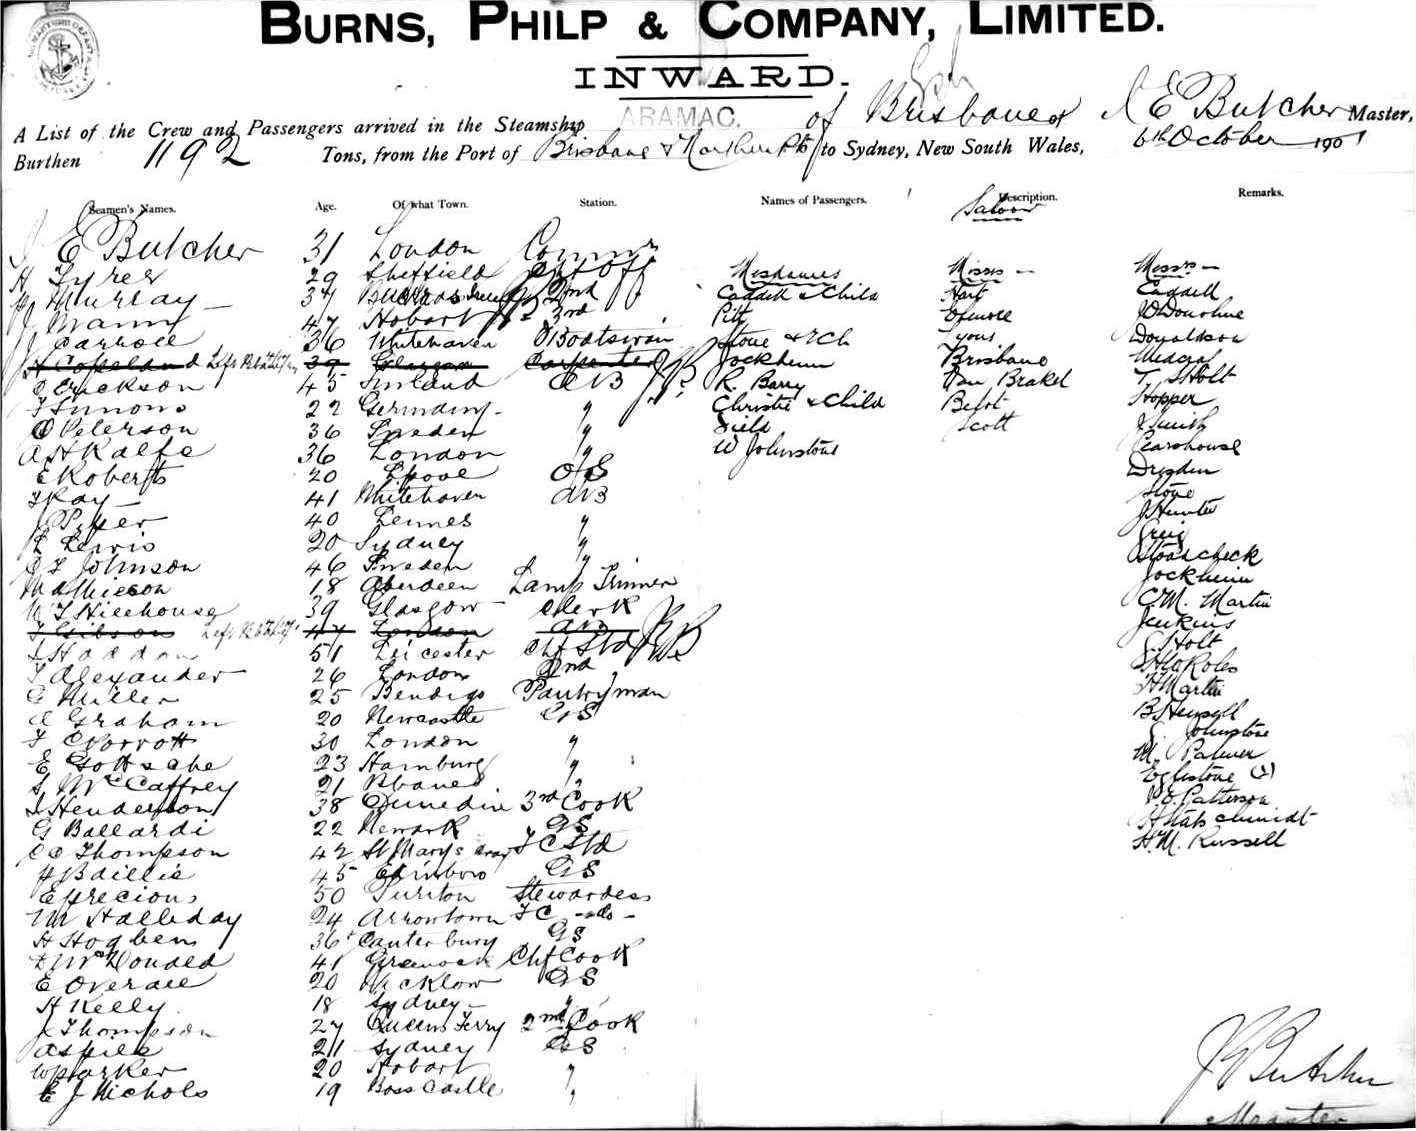 BURNS, PHILP & COMPANY, LIMITED.
INWARD.
A List of the Crew and Passengers arrived in the Steamship ARAMAC. of Brisbane of J E Butcher Master,
Burthen 1192 Tons, from the Port of Brisbane & to Sydney, New South Wales, 6th October 1901
Seamen's Names. Age. Of what Town. Station. Names of Passengers. Description. Remarks.
Saloon
J E Butcher 31 London Comm
H 29 Sheffield Chf Off Mesdames Misses Messrs
Murray 37 2nd Caddell & Child Hart Caddell
J Mann 47 Hobart 3rd Pitt J O'Donohue
J Carroll 36 Whitehaven Boatswain Stone & ch Lyons Donaldson
H Copeland Left 39 Glasgow Carpenter Jockheim Brisbane Medcraf
Erickson 45 Finland AB R. Barry Van Brakel T. S Holt
22 Germany " Christie & Child Hopper
Peterson 36 Sweden " Field Scott J Smith
A H Ralfe 36 London " W Johnstone Pearshouse
E Roberts 20 Lpool O/S Dryden
Kay 41 Whitehaven AB Stone
J Piper 40 " J Hunter
Lewis 20 Sydney " Greig
Johnson 46 Sweden "
Mathieson 18 Aberdeen Lamp Trimmer Jockheim
W T Hillhouse 39 Glasgow Clerk C. M. Martin
Gibson Left 47 London AB Jenkins
Haddon 51 Leicester Chf Std Holt
Alexander 26 London 2nd
G Miller 25 Bendigo Pantryman H Martin
Graham 20 Newcastle GS B Hensell
30 London " Johnstone
E Gottsche 23 Hamburg " M. Palmer
S McCaffrey 21 Bbane " Eglistone (2)
Henderson 38 Dunedin 3rd Cook Patterson
G Ballardi 22 Newark GS
Thompson 42 St Marys F C Std H. M. Russell
H Baillie 45 Edinboro GS
E Precious 50 Stewardess
M Halliday 24 Arrowtown F C -do-
H Hogben 36 Canterbury GS
McDonald 41 Greenock Chf Cook
E Overall 20 Wicklow GS
H Kelly 18 Sydney "
J Thompson 27 Queens Ferry 2nd Cook
21 Sydney GS
W Parker 20 Hobart "
E J Nichols 19 Boscastle "
J E Butcher
Master